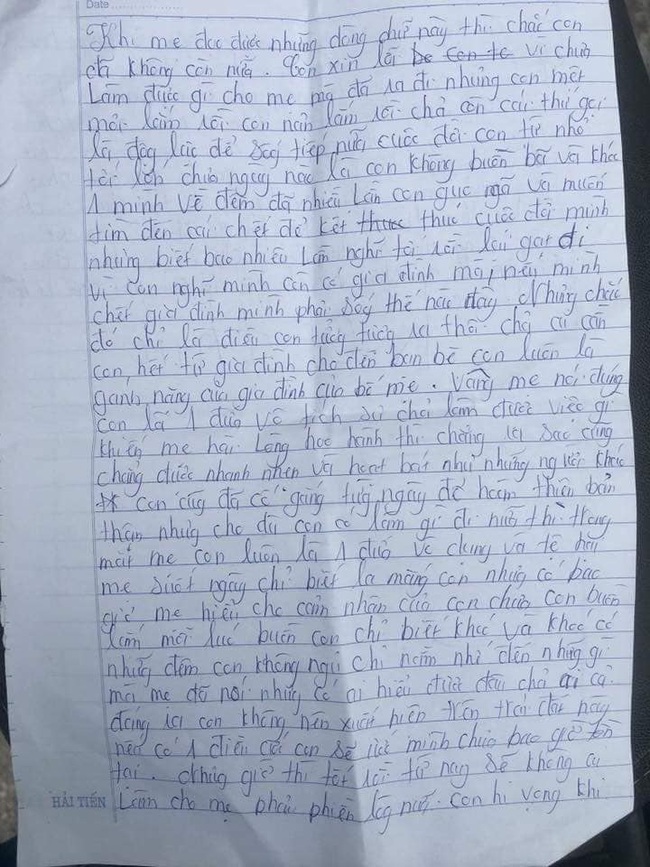 Date
Khi mẹ đọc được những dòng chữ này thì chắc con
đã không còn nữa. Con xin lỗi be con te vì chưa
làm được gì cho mẹ mà đã ra đi nhưng con mệt
mỏi lắm rồi con nản lắm rồi chả còn cái thứ gọi
là động lực để sống tiếp nữa cuộc đời con từ nhỏ
tới lớn chưa ngày nào là con không buồn bã và khóc
1 mình về đêm đã nhiều lần con gục ngã và muốn
tìm đến cái chết để kết thúc cuộc đời mình
nhưng biết bao nhiêu lần nghĩ tới rồi lại gạt đi
vì con nghĩ mình còn có gia đình mà, nếu mình
chết gia đình mình phải sống thế nào đây. Nhưng chắc
đó chỉ là điều con tưởng tượng ra thôi chả ai cần
con hết từ gia đình cho đến bạn bè con luôn là
gánh nặng của gia đình của bố mẹ. Vâng mẹ nói đúng
con là 1 đứa vô tích sự chả làm được việc gì
khiến mẹ hài lòng học hành thì chẳng ra sao cũng
chẳng được nhanh nhẹn và hoạt bát như những người khác
con cũng đã cố gắng từng ngày để hoàn thiện bản
thân nhưng cho dù con có làm gì đi nữa thì trong
mắt mẹ con luôn là 1 đứa vô dụng và tệ hại
mẹ suốt ngày chỉ biết la mắng con nhưng có bao
giờ mẹ hiểu cho cảm nhận của con chưa con buồn
lắm mỗi lúc buồn con chỉ biết khóc và khóc có
những đêm con không ngủ chỉ nằm nhớ đến những gì
mà mẹ đã nói nhưng có ai hiểu được đâu chả ai cả
đáng ra con không nên xuất hiện trên trái đất này
nếu có 1 điều ước con sẽ ước mình chưa bao giờ tồn
tại. Nhưng giờ thì tốt rồi từ nay sẽ không ai
HẢI TIẾN làm cho mẹ phải phiền lòng nữa. Con hi vọng khi